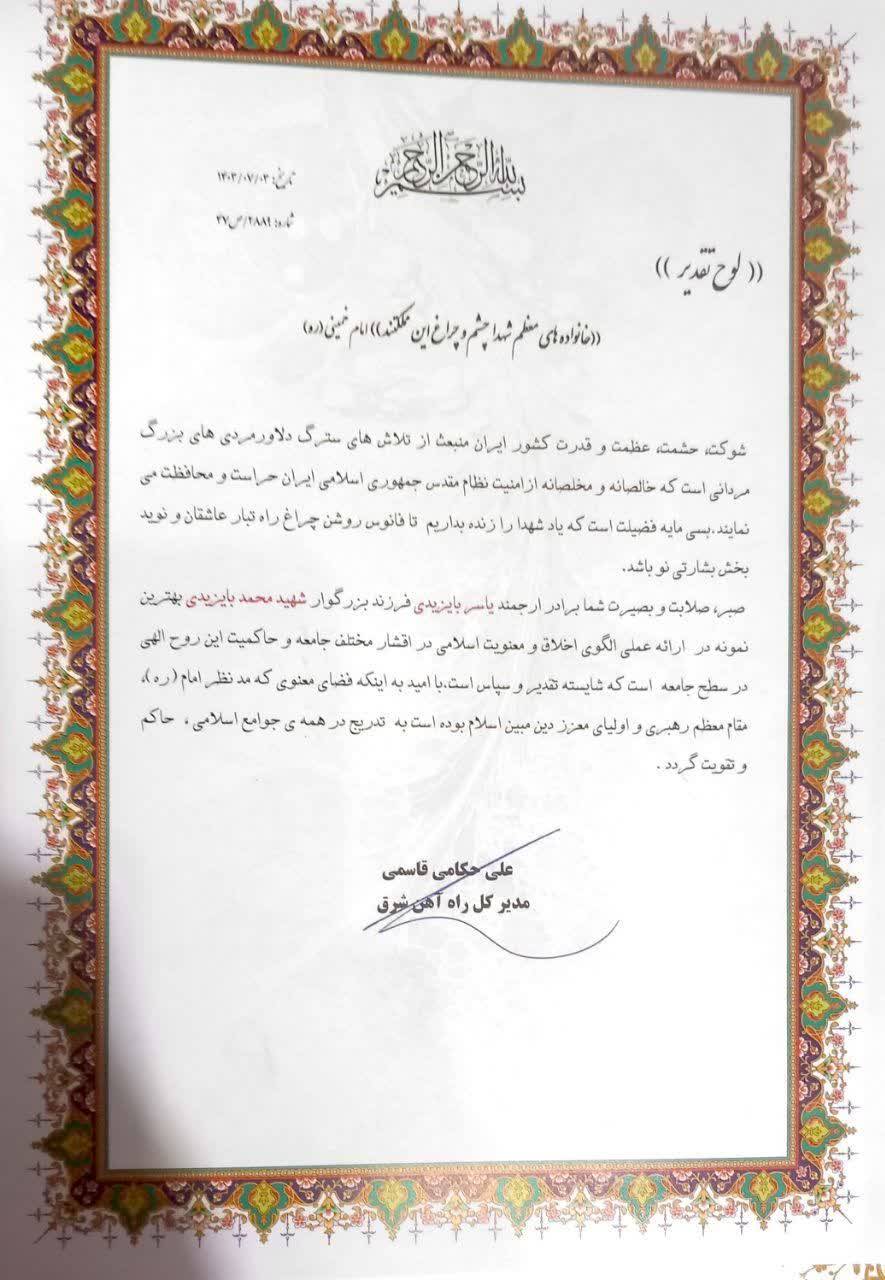 بسم الله الرحمن الرحیم
تاریخ: ۱۴۰۳/۰۷/۰۳
شماره: ۲۸۸۹/ص۲۷
((لوح تقدیر))
((خانواده های معظم شهدا چشم و چراغ این مملکتند)) امام خمینی(ره)
شوکت، حشمت، عظمت و قدرت کشور ایران منبعث از تلاش های سترگ دلاورمردی های بزرگ
مردانی است که خالصانه و مخلصانه از امنیت نظام مقدس جمهوری اسلامی ایران حراست و محافظت می
نمایند.بسی مایه فضیلت است که یاد شهدا را زنده بداریم تا فانوس روشن چراغ راه تبار عاشقان و نوید
بخش بشارتی نو باشد.
صبر، صلابت و بصیرت شما برادر ارجمند یاسر بایزیدی فرزند بزرگوار شهید محمد بایزیدی بهترین
نمونه در ارائه عملی الگوی اخلاق و معنویت اسلامی در اقشار مختلف جامعه و حاکمیت این روح الهی
در سطح جامعه است که شایسته تقدیر و سپاس است.با امید به اینکه فضای معنوی که مد نظر امام (ره)،
مقام معظم رهبری و اولیای معزز دین مبین اسلام بوده است به تدریج در همه ی جوامع اسلامی ، حاکم
و تقویت گردد .
علی حکامی قاسمی
مدیر کل راه آهن شرق